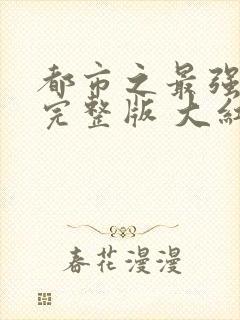 都市之最强
完整版 大红
春花漫漫